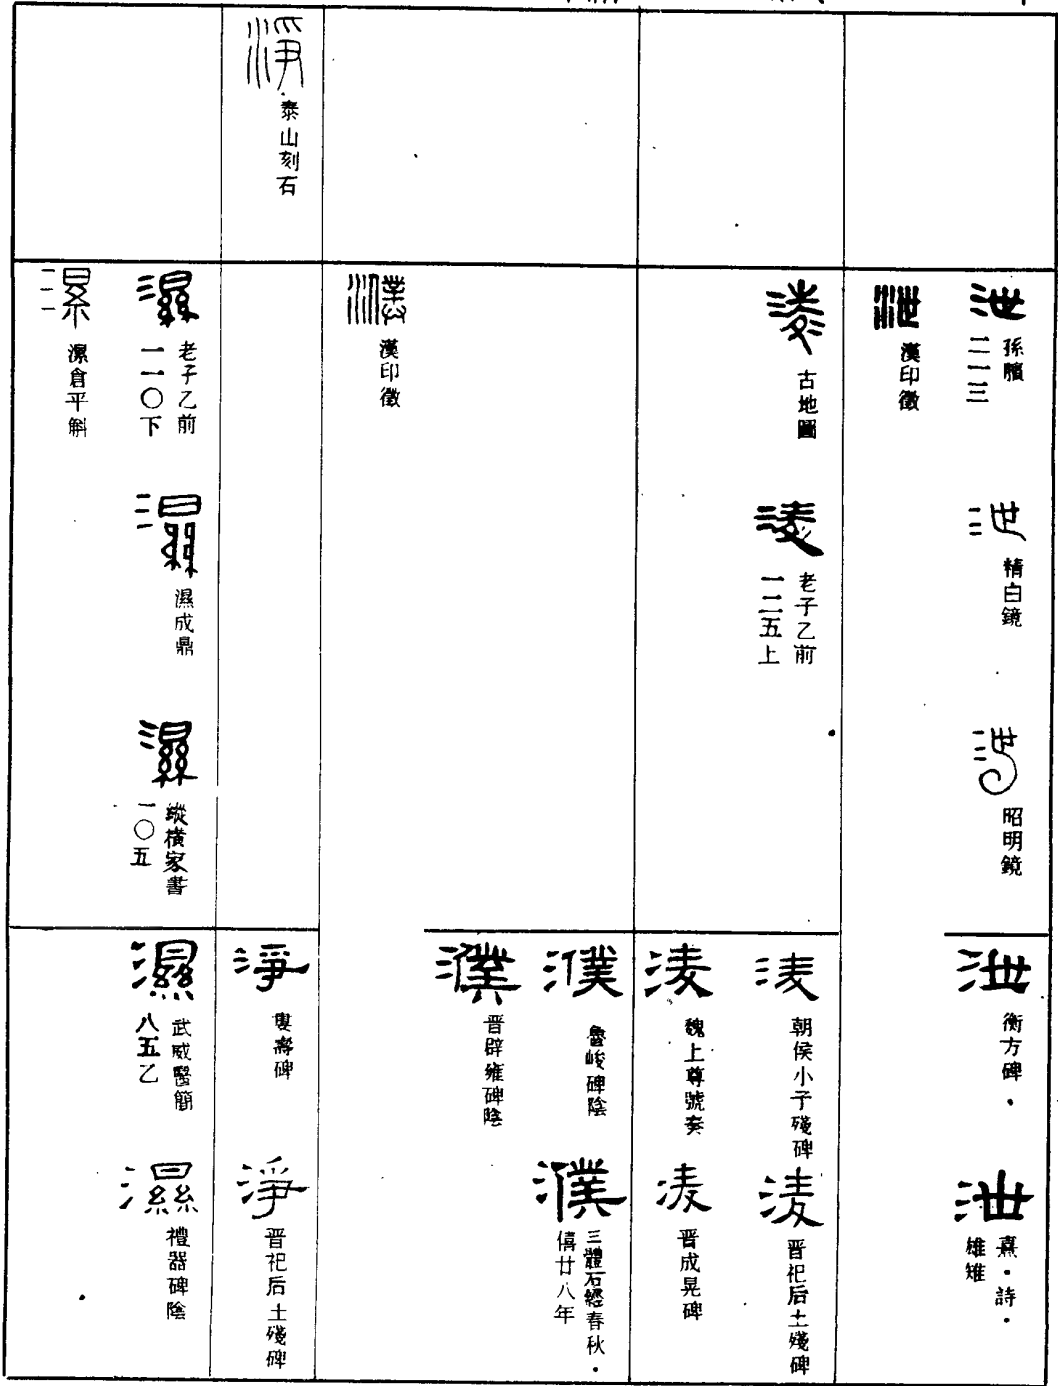 泄
孫臏
二一三
泄
精白鏡
泄
昭明鏡
泄
漢印徵
泄
衡方碑·
泄
熹·詩·
雄雉
淩
古地圖
淩
老子乙前
一二五上
淩
朝侯小子殘碑
淩
晋祀后土殘碑
淩
魏上尊號奏
淩
晋成晃碑
濮
漢印徵
濮
魯峻碑陰
濮
三體石經春秋·
僖廿八年
濮
晋辟雍碑陰
淨
泰山刻石
淨
婁壽碑
淨
晋祀后土殘碑
濕
老子乙前
一一〇下
濕
濕成鼎
濕
縱橫家書
一〇五
漯倉平斛
濕
武威醫簡
八五乙
濕
禮器碑陰